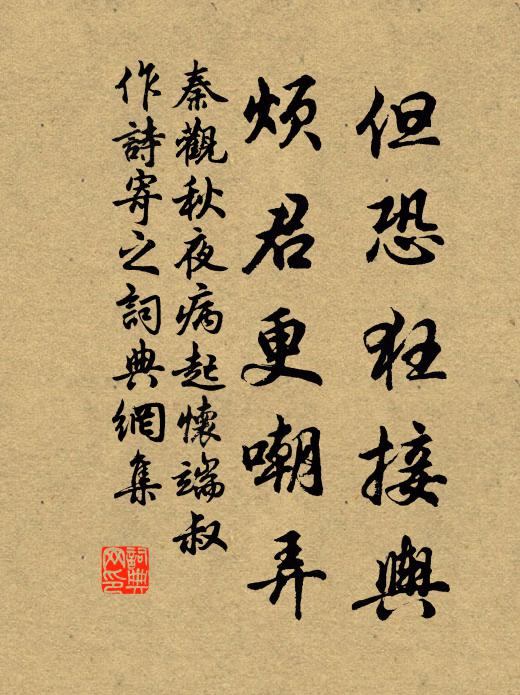 但恐狂接輿
煩君更嘲弄
秦觀秋夜病起懷端叔
作詩寄之詞典網集
詞典网印